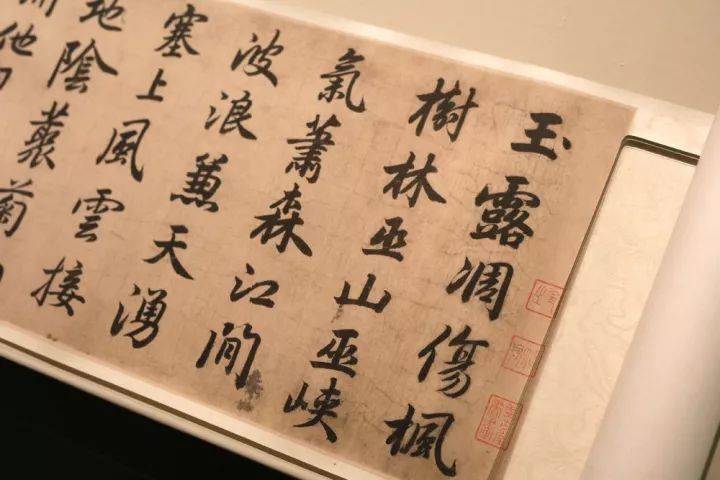 玉露凋傷楓
樹林巫山巫峽
氣蕭森江間
波浪兼天湧
塞上風雲接
地陰叢菊
他日